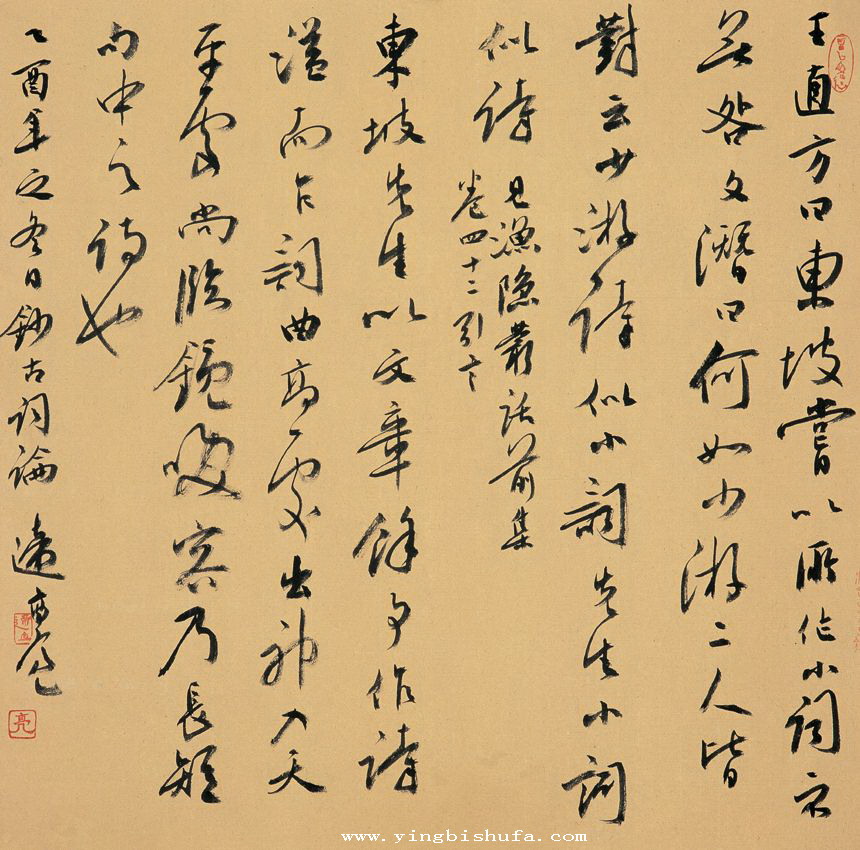 王直方曰東坡嘗以所作小詞示
無咎文潛曰何如少游二人皆
對云少游詩似小詞先生小詞
似詩
見漁隱叢話前集
卷四十二引
東坡先生以文章餘事作詩
溢而作詞曲高處出神入天
平處尚臨鏡乃長短
句中之詩也
乙酉年之冬日鈔古詞論
亮
www.yingbishufa.com